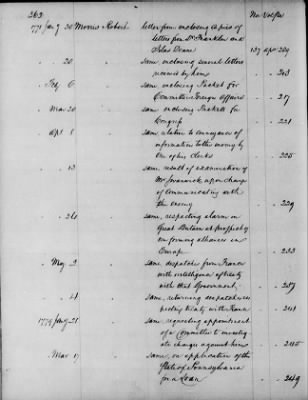 363.
No. Vol. Pa
1778 Jany 20 Morris Robert letter from enclosing copies of
letters from Dr. Franklin and
Silas Deane 137 App 209
" 20 " same, enclosing several letters
received by him " 203
Feby 6 " same, enclosing Packet for
Committee Foreign Affairs " 217
Mar 20 " same, enclosing Packets for
Congress " 221
Apl 8 " same, relative to conveyance of
information to the enemy by
one of his Clerks " 225
" 13 " same, result of examination of
Mr. Swanwick upon charge
of communicating with
the enemy " 229
" 26 " same, respecting alarm in
Great Britain at prospect of
our forming alliances in
Europe " 233
May 2 " same, despatches from France
with intelligence of treaty
with that Government " 237
" 4 " same, returning despatches re-
specting treaty with France " 241
1779 Jany 21 " same, requesting appointment
of a Committee to investi-
gate charges against him " 245
Mar 17 " same, on application of the
State of Pennsylvania
for a Loan " 249